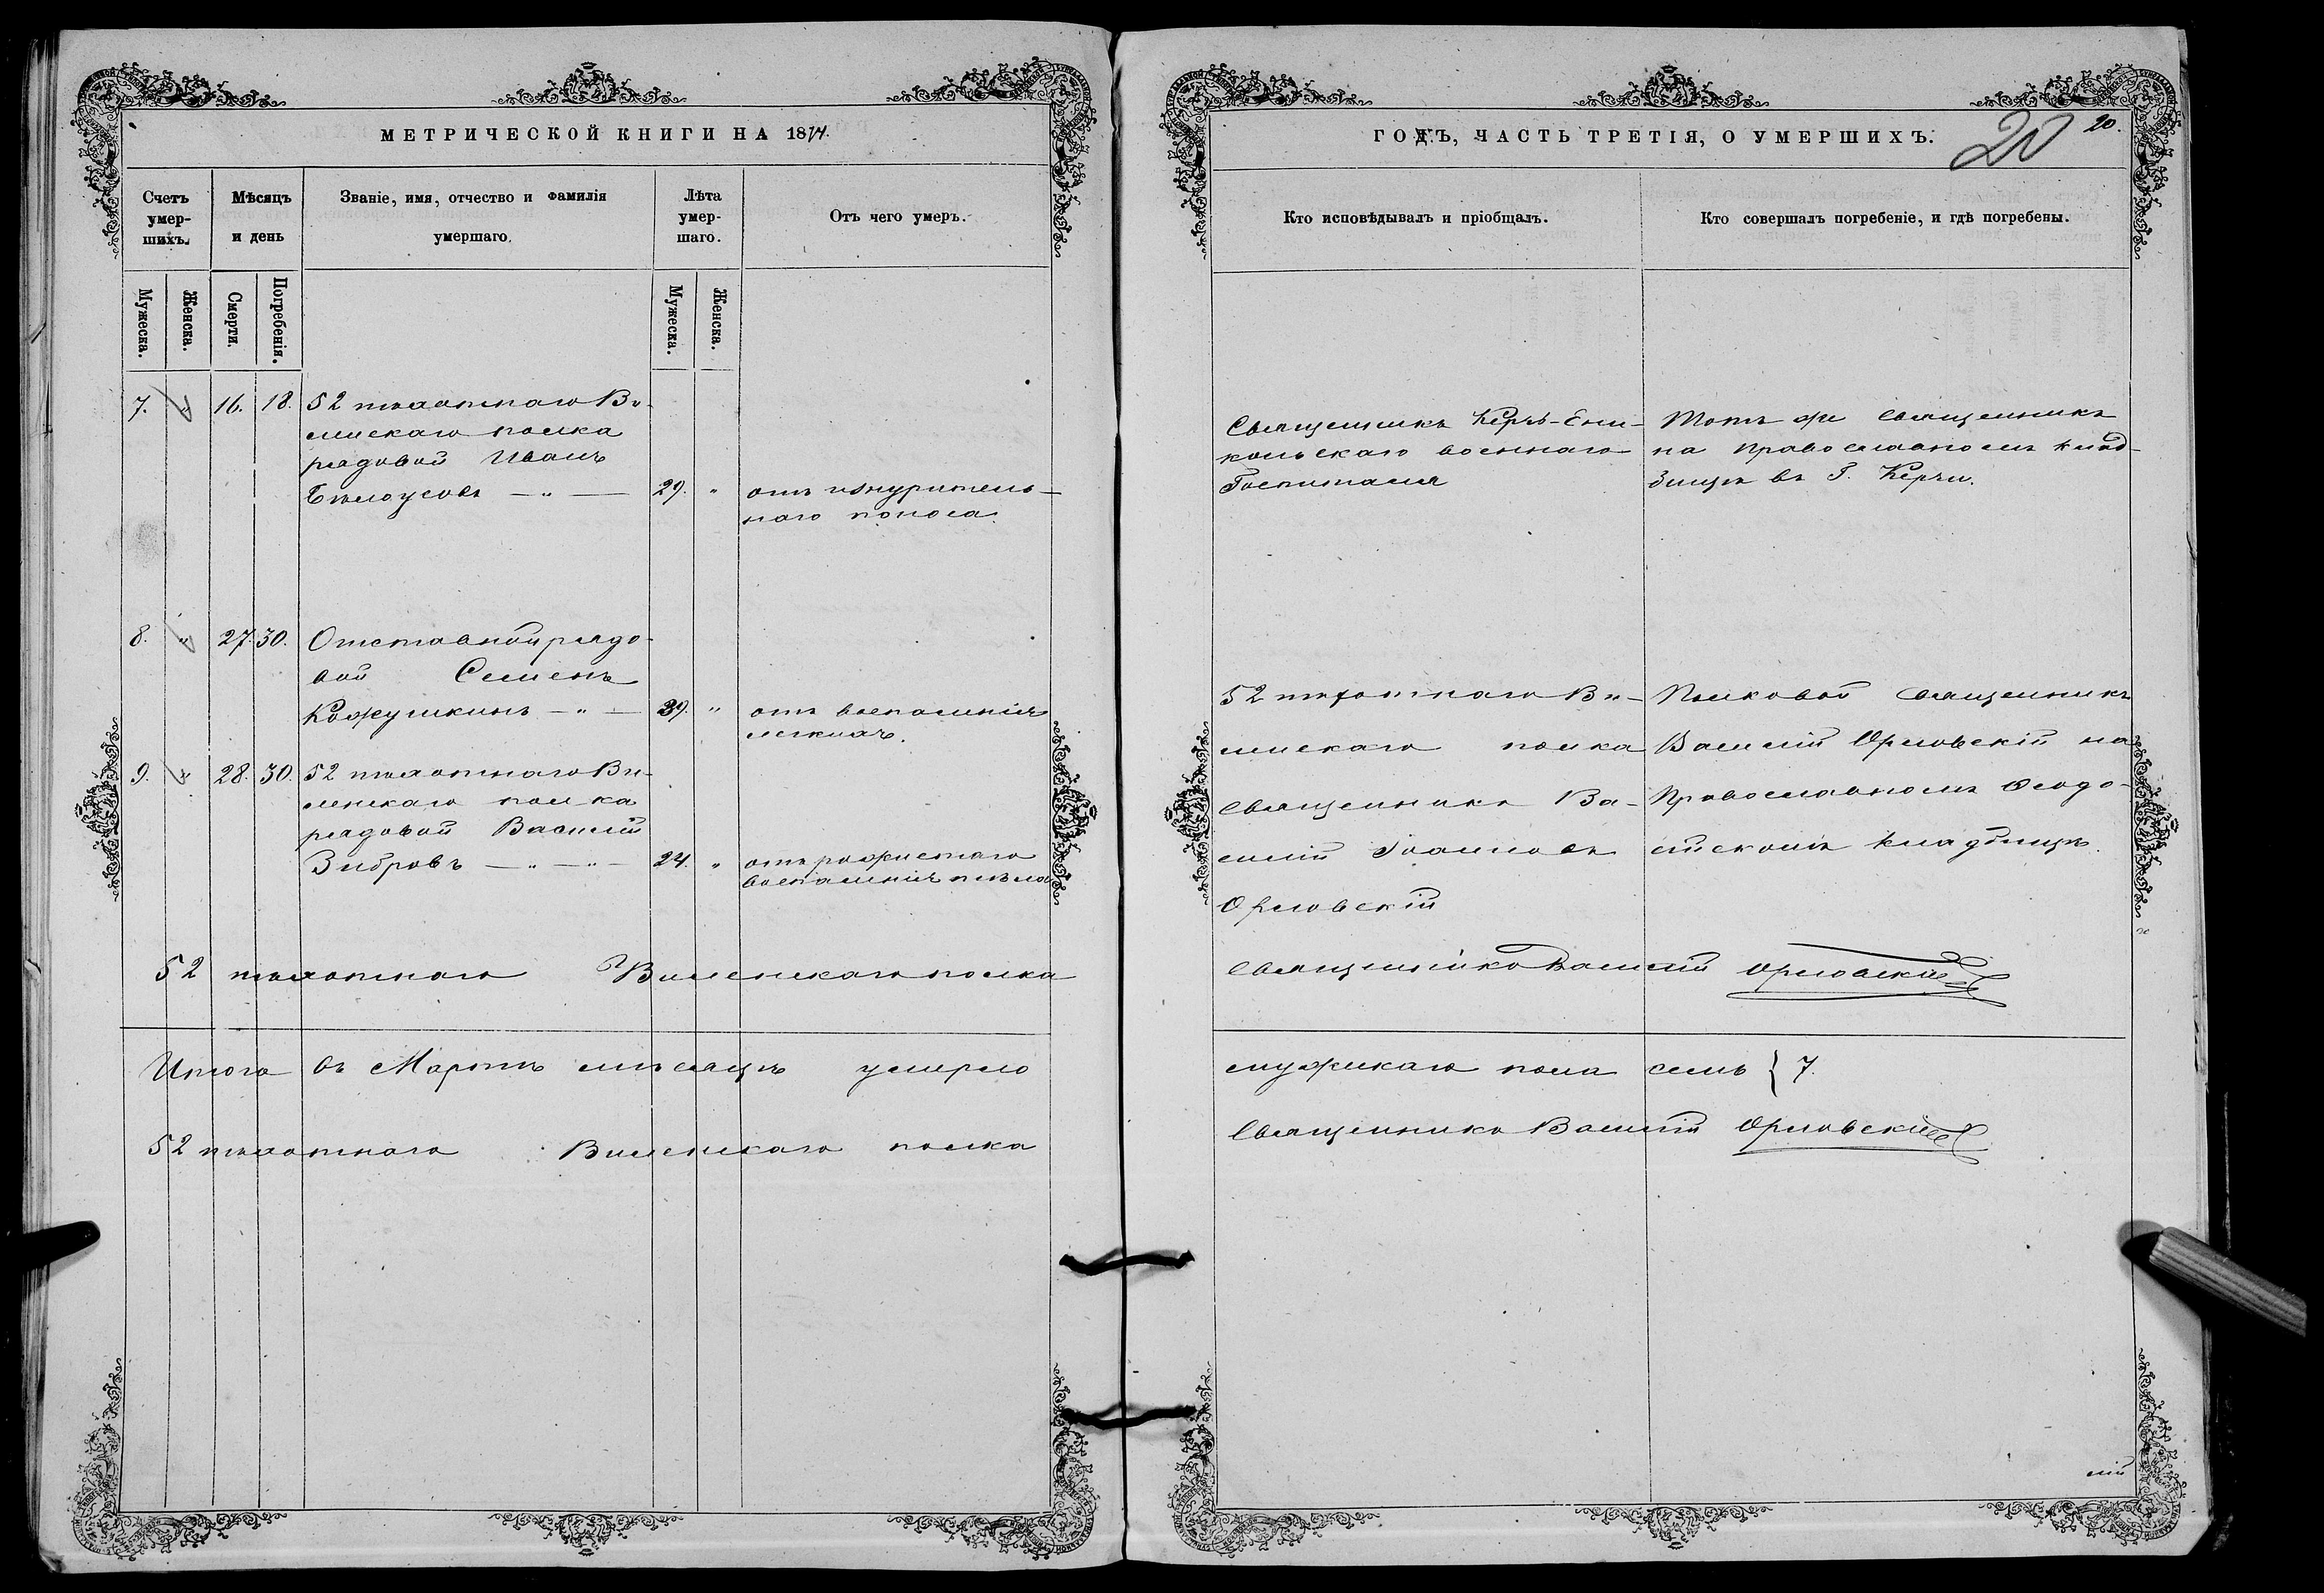 МЕТРИЧЕСКОЙ КНИГИ НА 1874.
Счетъ умер-шихъ.
Мѣсяцъ и день
Званіе, имя, отчество и фамилія умершаго.
Лѣта умер-шаго.
Отъ чего умеръ.
Мужеска.
Женска.
Смерти.
Погребенія.
Мужеска.
Женска.
7. " 16. 18. 52 пѣхотнаго Ви-
ленскаго полка
рядовой Иванъ
Бѣлоусовъ — " — 29. " отъ изнуритель-
наго поноса.
8. " 27. 30. Отставной рядо-
вой Семенъ
Кожушкинъ — " — 39. " отъ воспаленія
легкихъ.
9. " 28. 30. 52 пѣхотнаго Ви-
ленскаго полка
рядовой Василій
Зибровъ — " — " — 24. " отъ рожистаго
воспаленія тѣла
52 пѣхотнаго Виленскаго полка
Итого въ Мартѣ мѣсяцѣ умерло
52 пѣхотнаго Виленскаго полка
ГОДЪ, ЧАСТЬ ТРЕТІЯ, О УМЕРШИХЪ.
20 20.
Кто исповѣдывалъ и пріобщалъ.
Кто совершалъ погребеніе, и гдѣ погребены.
Священникъ Керчь-Ени-
кольскаго военнаго
Госпиталя
Тотъ же Священникъ
на православномъ клад-
бищѣ въ Г. Керчи.
52 пѣхотнаго Ви-
ленскаго полка
священникъ Ва-
силій Іоанновъ
Орловскій
Полковой священникъ
Василій Орловскій на
Православномъ Ѳеодо-
сійскомъ кладбищѣ.
Священникъ Василій Орловскій
мужскаго пола семь } 7.
Священникъ Василій Орловскій